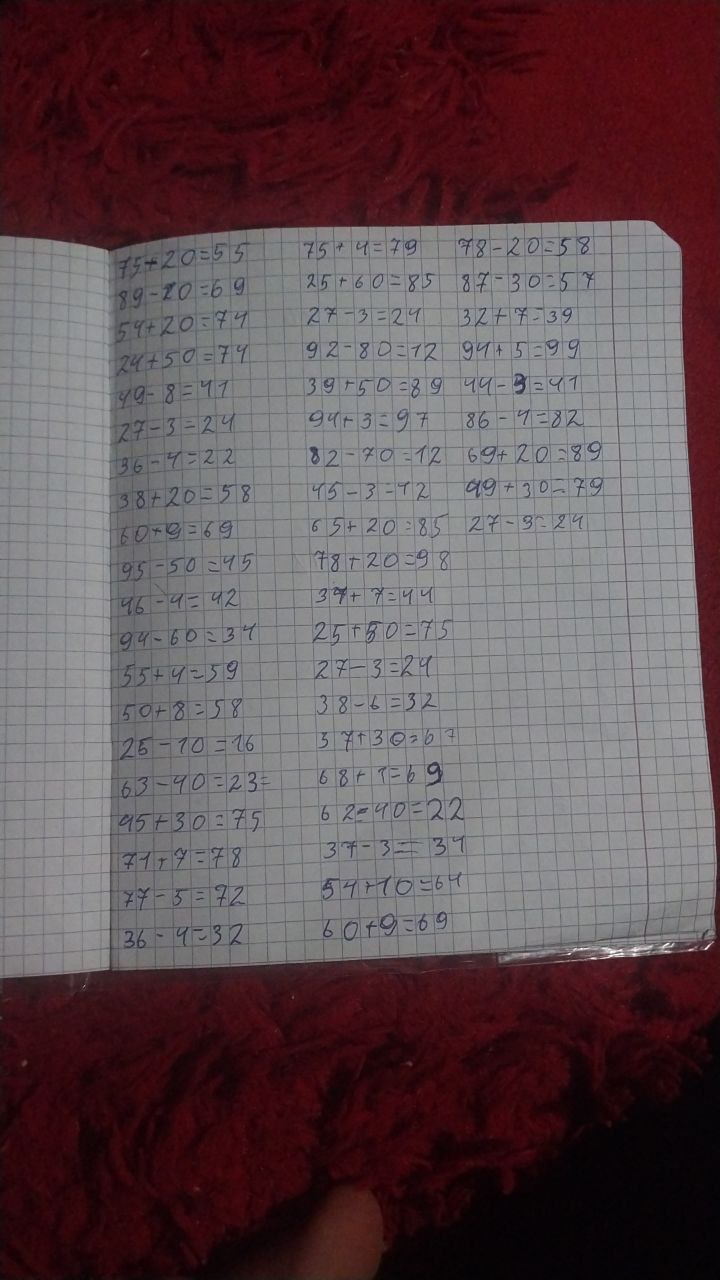 75+20=55 75+4=79 78-20=58
89-20=69 25+60=85 87-30=57
54+20=74 27-3=24 32+7=39
24+50=74 92-80=12 94+5=99
49-8=41 39+50=89 44-3=41
27-3=24 94+3=97 86-4=82
36-4=22 82-70=12 69+20=89
38+20=58 45-3=42 49+30=79
60+9=69 65+20=85 27-3=24
95-50=45 78+20=98
46-4=42 37+7=44
94-60=34 25+50=75
55+4=59 27-3=24
50+8=58 38-6=32
26-10=16 37+30=67
63-40=23= 68+1=69
45+30=75 62-40=22
71+7=78 37-3=34
77-5=72 54+10=64
36-4=32 60+9=69